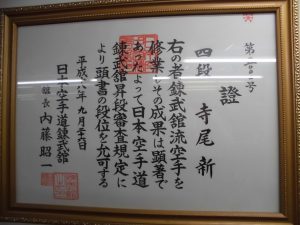 證
四段 寺尾新
右の者錬武舘流空手を
修業しその成果は顕著で
あったよって日本空手道
錬武舘昇段審査規定に
より頭書の段位を允可する
平成八年九月二十六日
日本空手道錬武舘
舘長 内藤昭一